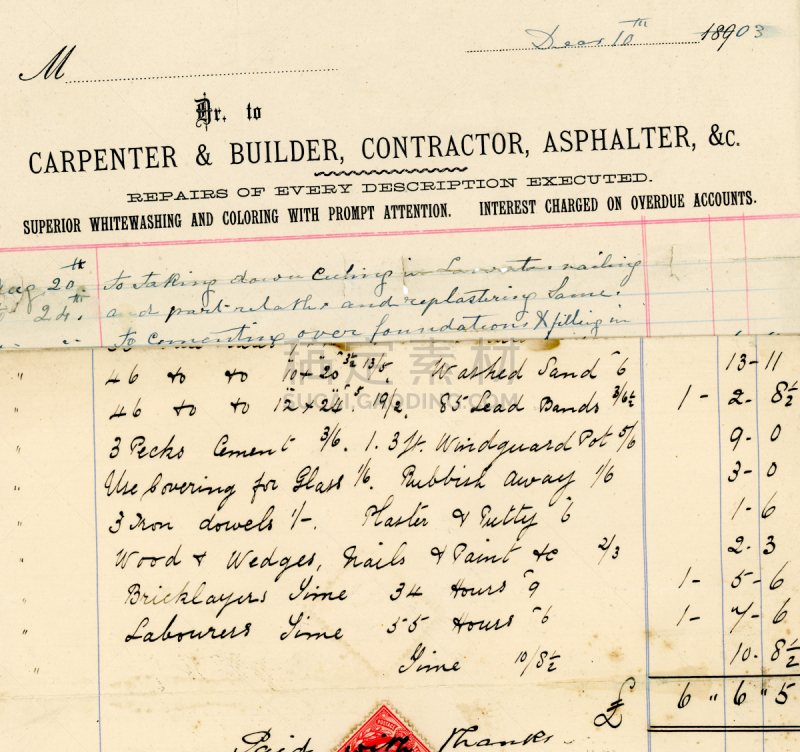 Decr 10th 18903
M
Dr. to
CARPENTER & BUILDER, CONTRACTOR, ASPHALTER, &c.
REPAIRS OF EVERY DESCRIPTION EXECUTED.
SUPERIOR WHITEWASHING AND COLORING WITH PROMPT ATTENTION. INTEREST CHARGED ON OVERDUE ACCOUNTS.
Aug 20th To taking down Ceiling in nailing
" 24th and part relaths and replastering Same.
" " To cementing over foundations & filling in
" 46 do do 10 x 20 3½ 13/5. Washed Sand "6 13-11
" 46 do do 12 x 24 5 19/2. 85 Lead Bands 3/6½ 1-2-8½
" 3 Pecks Cement 3/6. 1. 3 ft. Windguard Pot 5/6 9-0
" Use Covering for Glass 1/6. Rubbish away 1/6 3-0
" 3 Iron dowels 1/-. Plaster & Putty "6 1-6
" Wood & Wedges, Nails & Paint &c 2/3 2-3
" Bricklayers Time 34 Hours "9 1-5-6
" Labourers Time 55 Hours "6 1-7-6
" Time 10/8½ 10-8½
£ 6 " 6 " 5
POSTAGE
Paid with Thanks
搞定素材
SUCAI.GAODING.COM